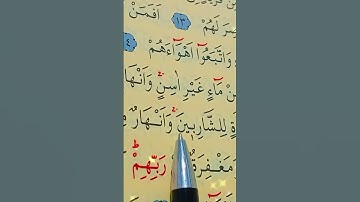 صِرَ لَهُمْ ﴿١٣﴾ اَفَمَنْ
وَاتَّبَعُٓوا اَهْوَٓاءَهُمْ ﴿١٤
مَٓاءٍ غَيْرِ اٰسِنٍۚ وَاَنْهَا
ةٍ لِلشَّارِب۪ينَۚ وَاَنْهَارٌ
مَغْفِرَةٌ رَبِّهِمْۜ